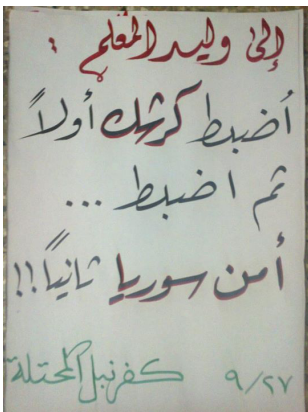 إلى وليد المعلم :
أضبط كرشك أولاً
ثم اضبط ...
أمن سوريا ثانياً !!
كفرنبل المحتلة ٩/٢٧